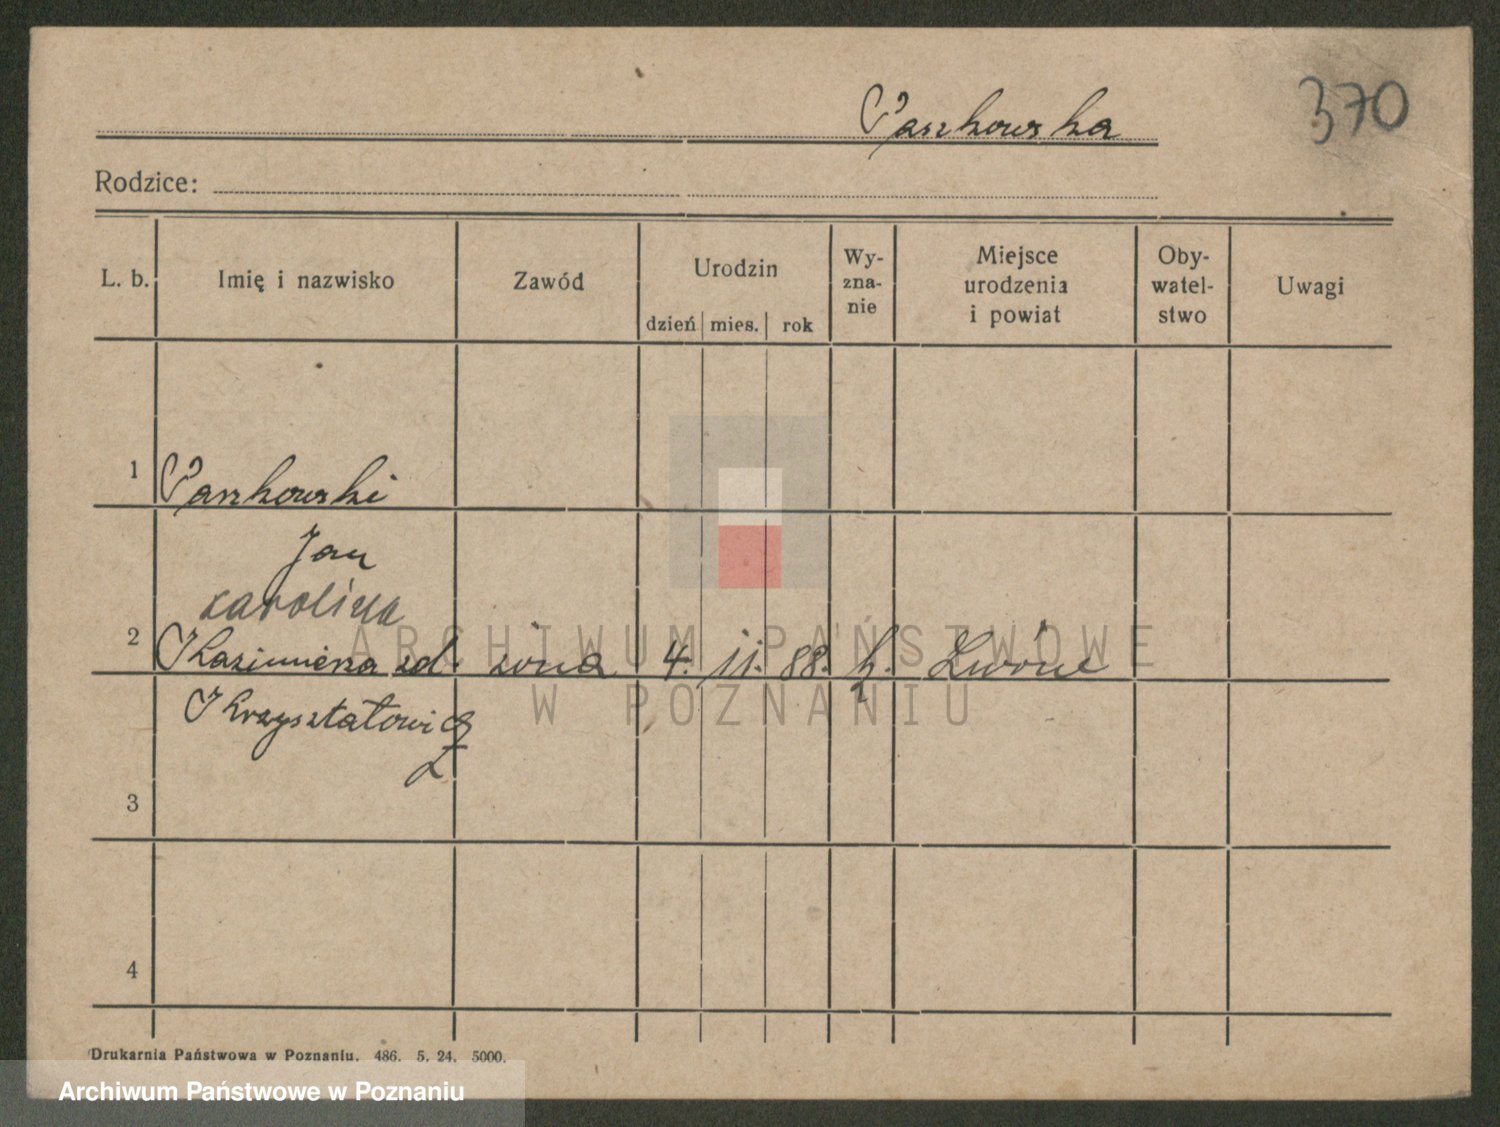 Paszkowska
370
Rodzice:
L. b.
Imię i nazwisko
Zawód
Urodzin
dzień mies. rok
Wy-
zna-
nie
Miejsce
urodzenia
i powiat
Oby-
watel-
stwo
Uwagi
1 Paszkowski
Jan
Karolina
2 Kazimiera zd. żona 4. 11. 88. Lwów
Krzysztatowicz
3
4
ARCHIWUM PAŃSTWOWE
W POZNANIU
Drukarnia Państwowa w Poznaniu. 486. 5. 24. 5000.
Archiwum Państwowe w Poznaniu